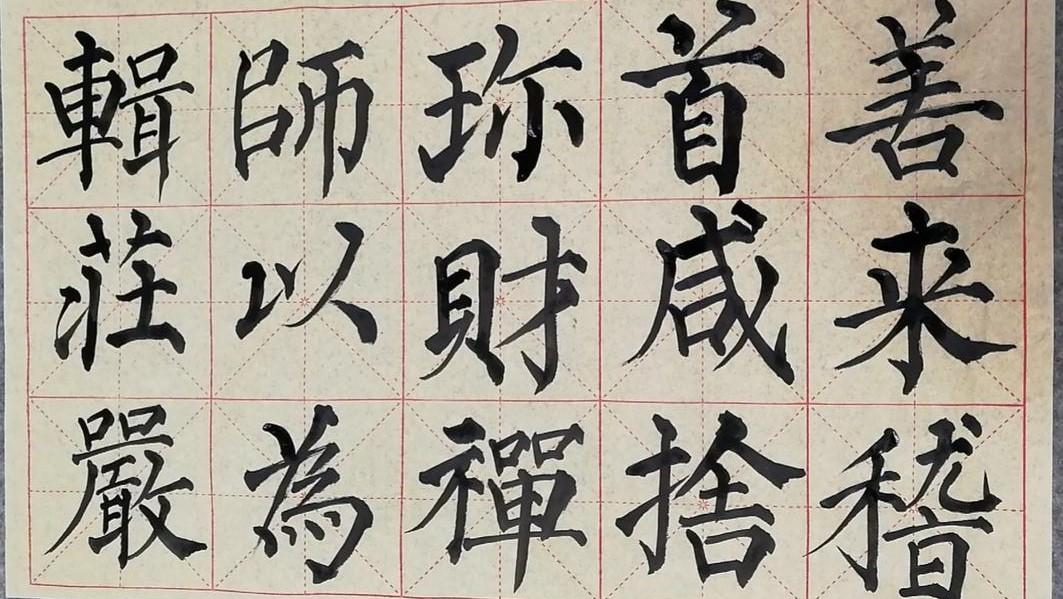 善来稽
首咸捨
珎財禪
師以為
輯莊嚴